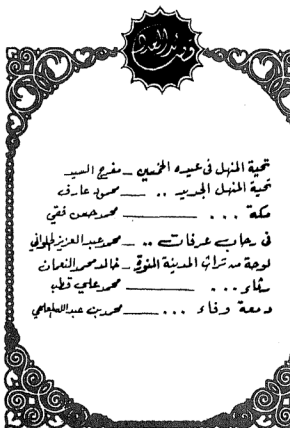 وريد العدد
تحية المنهل في عيده الخمسين - مفرج السيد
تحية المنهل الجديد .. ـــ محمود عارف
مكة ... ـــــــ محمد حسن فقي
في رحاب عرفات .. ـ محمد عبد العزيز حلواني
لوحة من تراث المدينة المنورة - خالد محمد النعمان
رثاء ... ـــــــ محمد علي قطب
دمعة وفاء ... ـــ محمد بن عبد الله